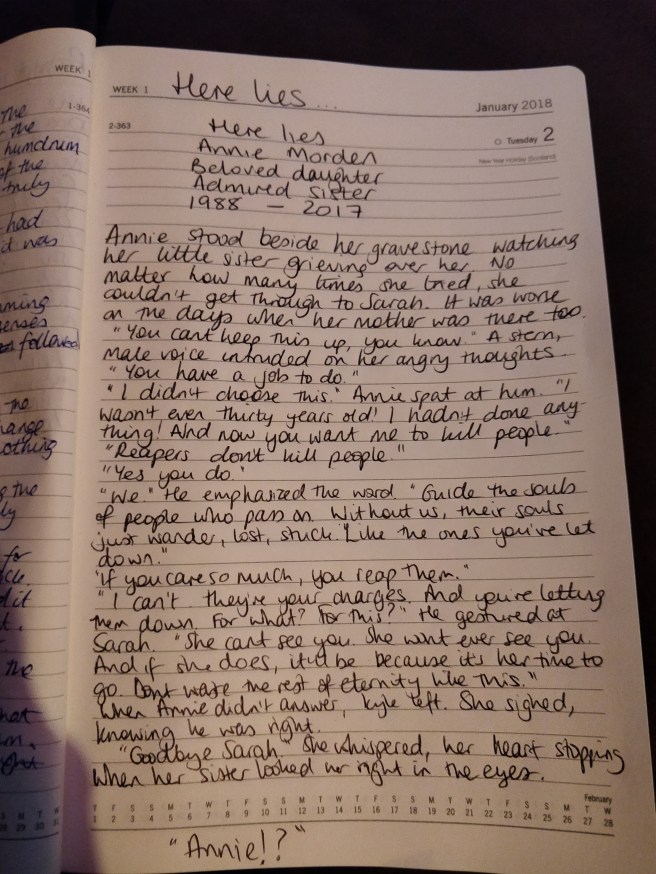 WEEK 1
1-364
the
the
humdrum
of the
truly
had
d was
ming
enses
followed
the
hange
othing
g the
ly
for
cle.
dit
t.
the
hat
m.
WEEK 1 Here lies... January 2018
2-363 Here lies Tuesday 2
Annie Morden New Year Holiday (Scotland)
Beloved daughter
Admired sister
1988 - 2017
Annie stood beside her gravestone watching
her little sister grieving over her. No
matter how many times she tried, she
couldn't get through to Sarah. It was worse
on the days when her mother was there too.
"You cant keep this up, you know." A stern,
male voice intruded on her angry thoughts.
"You have a job to do."
"I didn't choose this." Annie spat at him. "I
wasn't even thirty years old! I hadn't done any-
thing! And now you want me to kill people."
"Reapers don't kill people."
"Yes you do."
"We." He emphasized the word. "Guide the souls
of people who pass on. Without us, their souls
just wander, lost, stuck. Like the ones you've let
down."
"If you care so much, you reap them."
"I can't. they're your charges. And you're letting
them down. For what? For this?" He gestured at
Sarah. "She cant see you. She wont ever see you.
And if she does, it'll be because it's her time to
go. Dont waste the rest of eternity like this."
When Annie didn't answer, Kyle left. She sighed,
knowing he was right.
"Goodbye Sarah," she whispered, her heart stopping
when her sister looked her right in the eyes.
February
T F S S M T W T F S S M T W T F S S M T W T F S S M T W
1 2 3 4 5 6 7 8 9 10 11 12 13 14 15 16 17 18 19 20 21 22 23 24 25 26 27 28
"Annie!?"